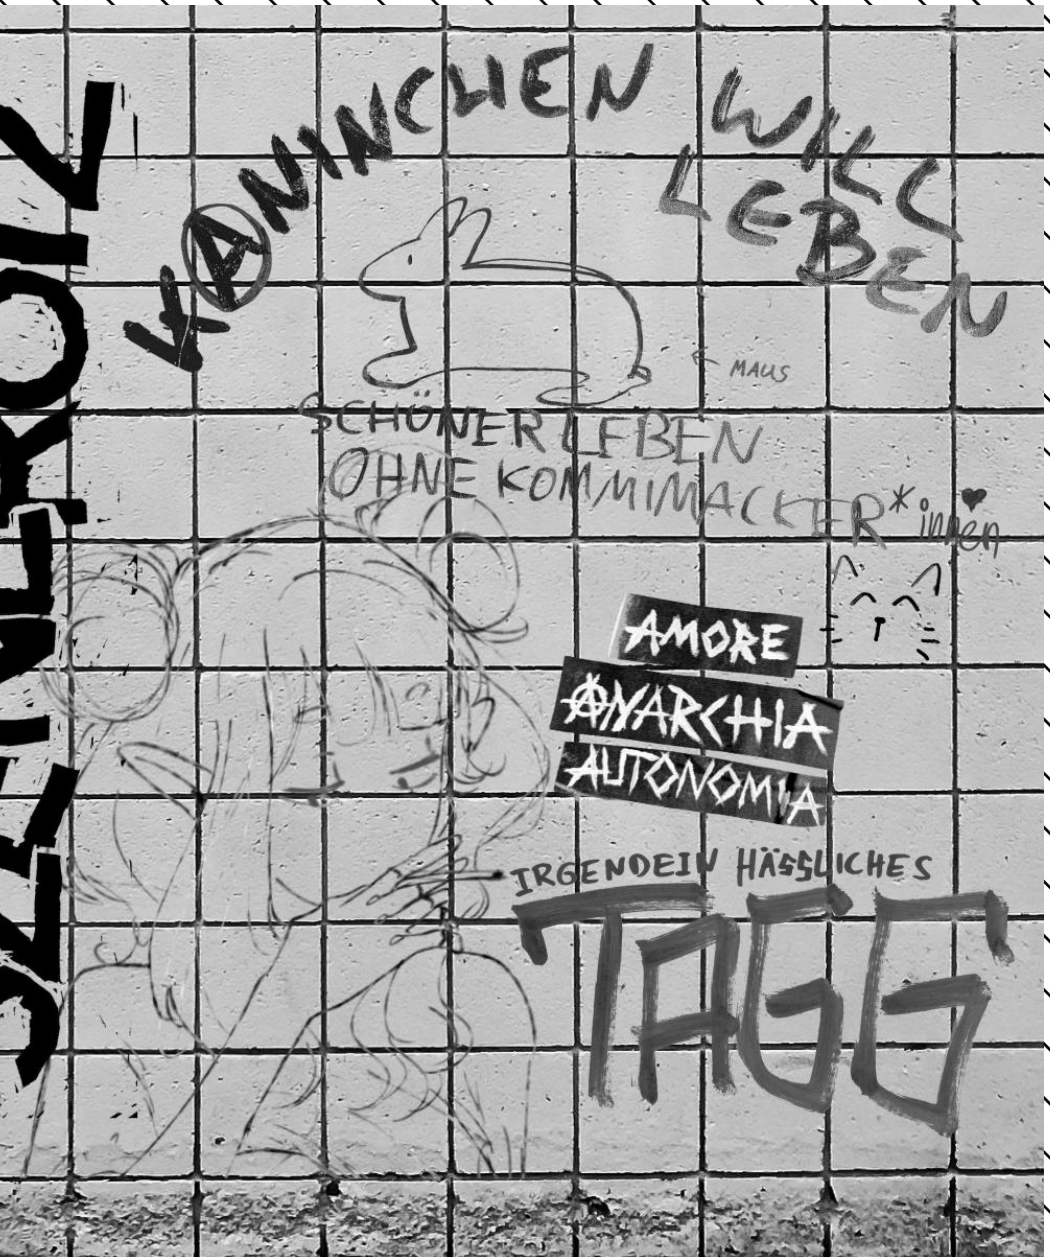 KANINCHEN WILL
LEBEN
← MAUS
SCHÖNER LEBEN
OHNE KOMMIMACKER*innen
AMORE
ANARCHIA
AUTONOMIA
IRGENDEIN HÄSSLICHES
TAGG